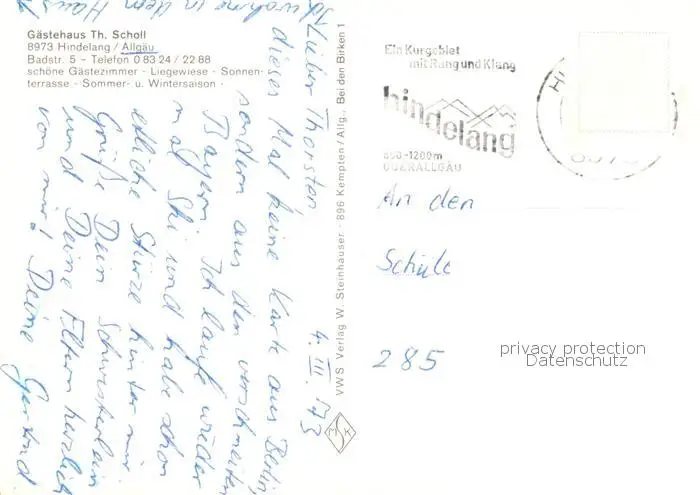 Gästehaus Th. Scholl
8973 Hindelang / Allgäu
Badstr. 5 - Telefon 0 83 24 / 22 88
schöne Gästezimmer - Liegewiese - Sonnen-
terrasse - Sommer- u. Wintersaison -
Ich wohne in dem Haus
4. III. 73
Lieber Thorsten,
dieses Mal keine Karte aus Berlin,
sondern aus den verschneiten
Bayern. Ich laufe wieder
mal Ski und habe schon
etliche Stürze hinter mir.
Grüße Dein Schwesterlein
und Deine Eltern herzlich
von mir! Deine Gertrud
VWS Verlag W. Steinhauser · 896 Kempten / Allg., Bei den Birken 1
Ein Kurgebiet
mit Rang und Klang
hindelang
850-1200m
OBERALLGÄU
An den
Schüle
285
privacy protection
Datenschutz